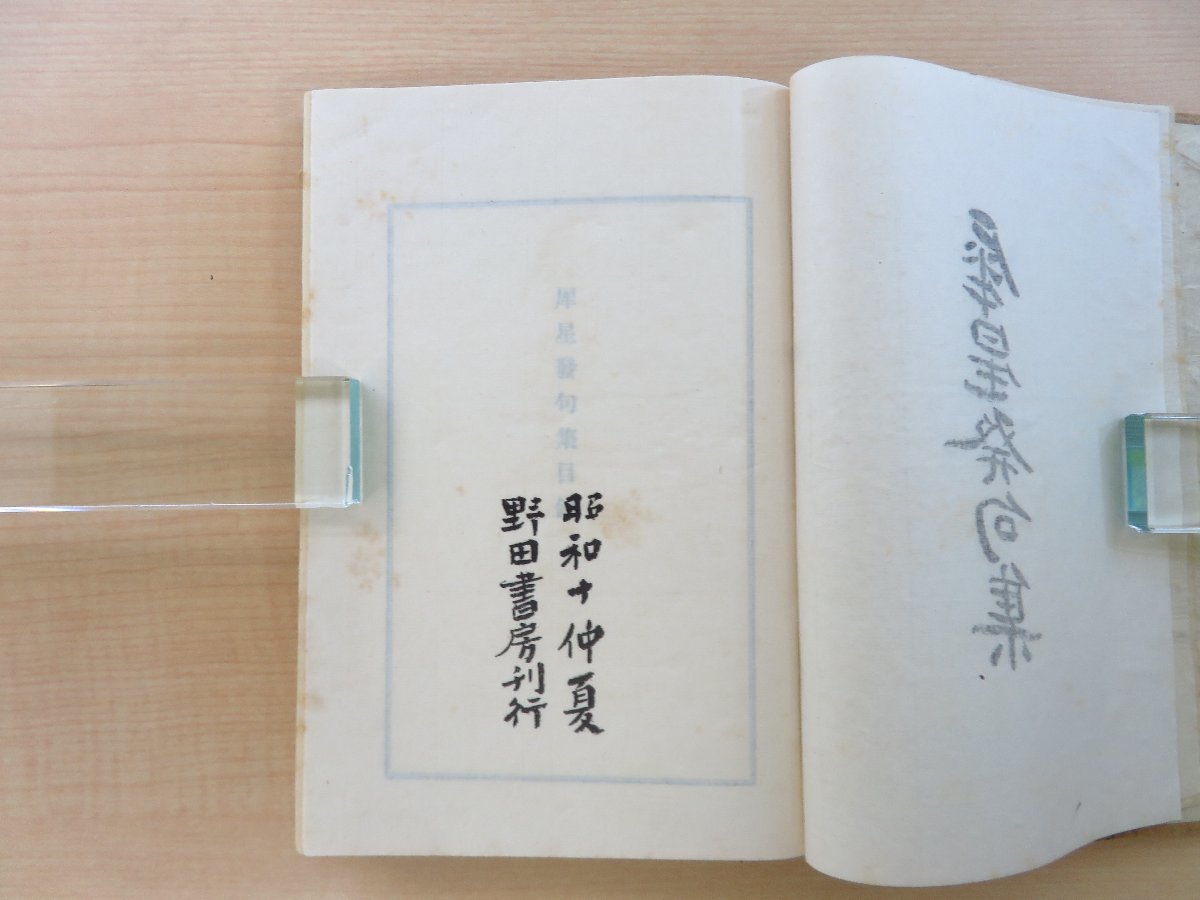 犀星發句集
昭和十仲夏
野田書房刊行
犀星發句集目